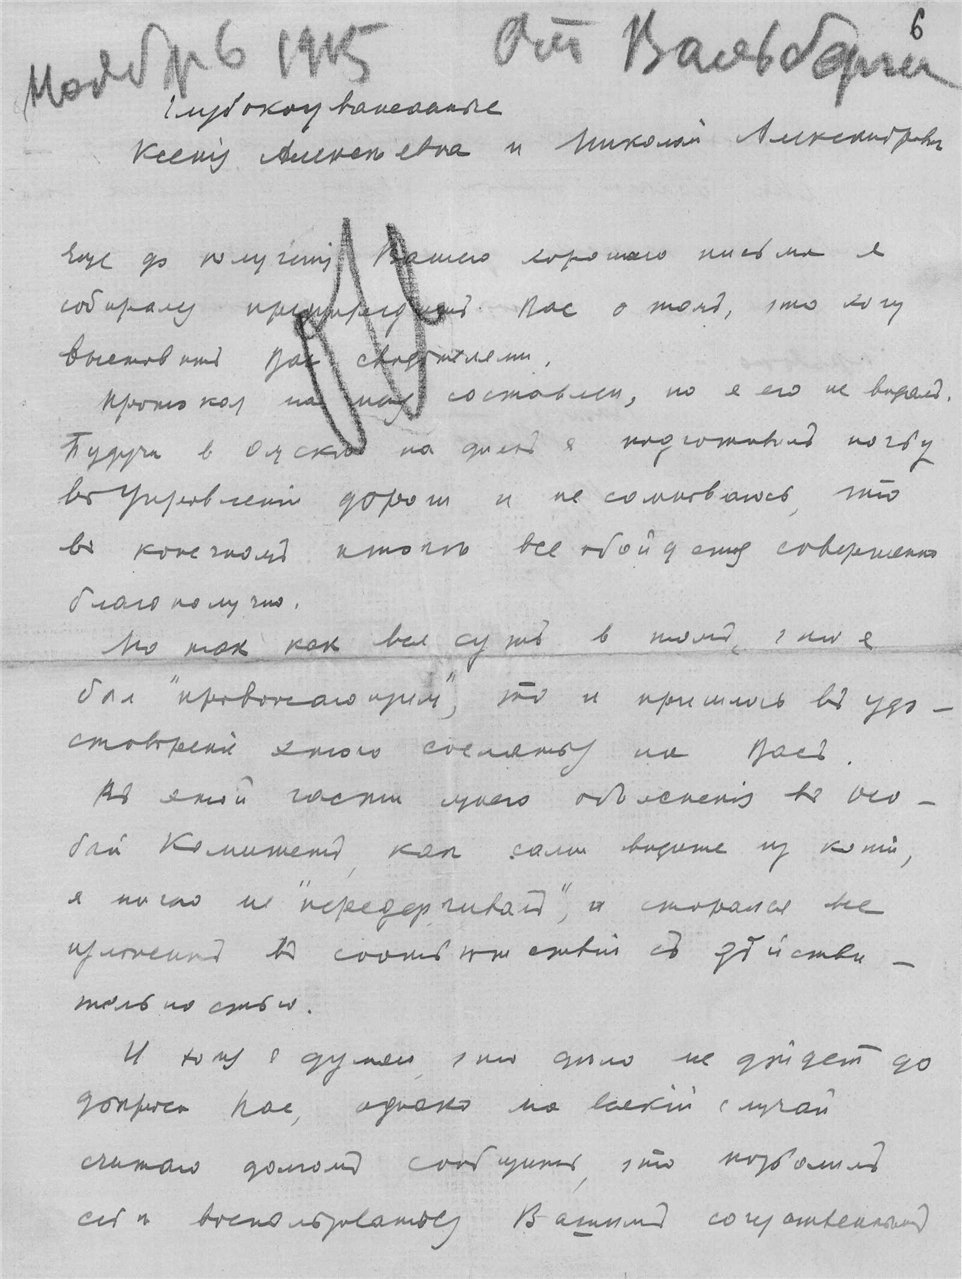 6
Ноябрь 1915 От Вальберга
Глубокоуважаемые
Ксенія Алексеевна и Николай Александрович
Еще до полученія Вашего хорошаго письма я
собирался предупредить Вас о томъ, что хочу
выставить Вас свидетелями.
Протокол на меня составлен, но я его не видалъ.
Будучи в Омске на дняхъ я подготовилъ почву
въ Управленіи дороги и не сомневаюсь, что
въ конечномъ итоге все обойдется совершенно
благополучно.
Но так как вся суть в томъ, что я
был "провожающим", то и пришлось въ удо-
стовереніе этого сослаться на Васъ.
Въ этой части моего объясненія въ осо-
бый Комитетъ, как сами видите из копіи,
я ничего не "передергивалъ", и старался все
изложить въ соответствіи съ дѣйстви-
тельностью.
И хотя я думаю, что дело не дойдетъ до
допроса Вас, однако на всякій случай
считаю долгомъ сообщить, что позволилъ
себе воспользоваться Вашимъ сочувственнымъ